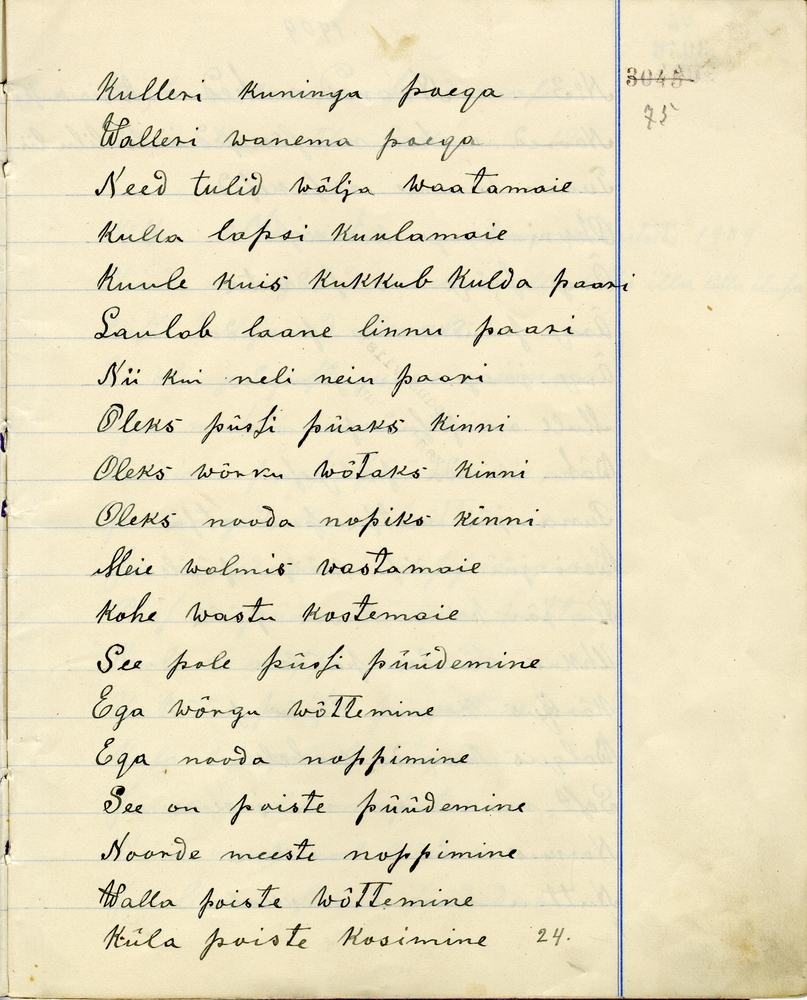 Kulleri kuninga poega
3045
Walleri wanema poega
75
Need tulid wälja waatamaie
Kulla lapsi kuulamaie
Kuule kuis kukkub kulda paari
Laulab laane linnu paari
Nii kui neli neiu paari
Oleks püssi püaks kinni
Oleks wõrku wõtaks kinni
Oleks nooda nopiks kinni
Meie walmis wastamaie
Kohe wastu kostemaie
See pole püssi püüdemine
Ega wõrgu wõttemine
Ega nooda noppimine
See on poiste püüdemine
Noorde meeste noppimine
Walla poiste wõttemine
Küla poiste kosimine 24.